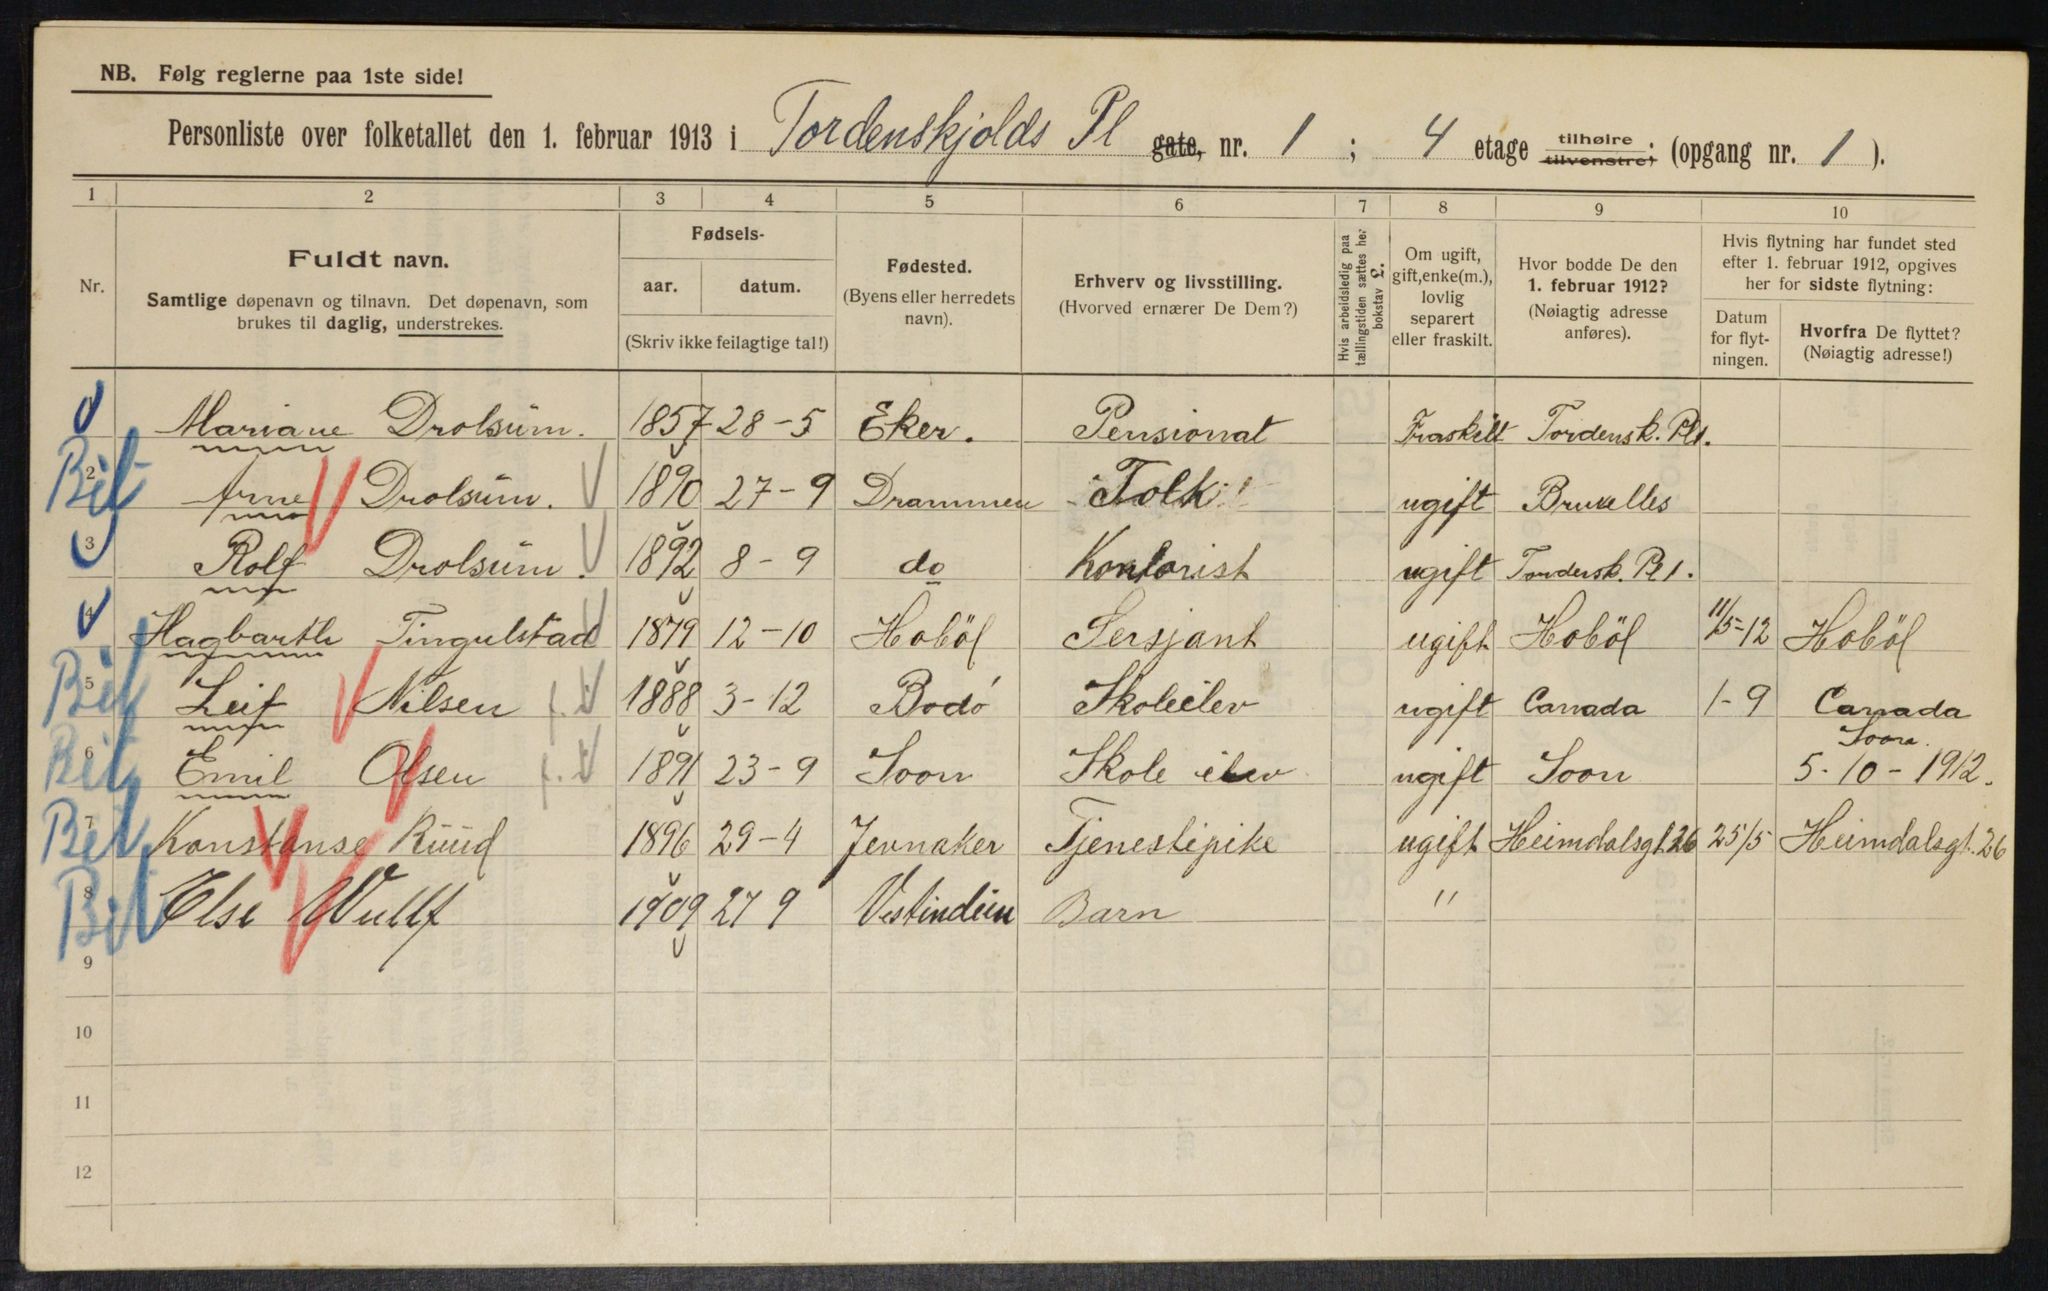 NB. Følg reglerne paa 1ste side!
Personliste over folketallet den 1. februar 1913 i Tordenskjolds Pl gate, nr. 1 ; 4 etage tilhøire tilvenstre) . (opgang nr. 1 ).
1 2 3 4 5 6 7 8 9 10
Nr.
Fuldt navn.
Samtlige døpenavn og tilnavn. Det døpenavn, som
brukes til daglig, understrekes.
Fødsels-
aar. datum.
(Skriv ikke feilagtige tal!)
Fødested.
(Byens eller herredets
navn).
Erhverv og livsstilling.
(Hvorved ernærer De Dem?)
Hvis arbeidsledig paa
tællingstiden sættes her
bokstav L.
Om ugift,
gift, enke(m.),
lovlig
separert
eller fraskilt.
Hvor bodde De den
1. februar 1912?
(Nøiagtig adresse
anføres).
Hvis flytning har fundet sted
efter 1. februar 1912, opgives
her for sidste flytning:
Datum
for flyt-
ningen.
Hvorfra De flyttet?
(Nøiagtig adresse!)
Mariane Drolsum. 1857 28-5 Eker. Pensionat Fraskilt Tordensk. Pl 1.
Bil 2 Arne Drolsum. 1890 27-9 Drammen Tolk ugift Bruxelles
3 Rolf Drolsum. 1892 8-9 do Kontorist ugift Tordensk. Pl 1.
4 Hagbarth Tingulstad 1879 12-10 Hoböl Sersjant ugift Hoböl 11/5-12 Hoböl
Bil 5 Leif Nilsen 1888 3-12 Bodó Skoleelev ugift Canada 1-9 Canada
Bil 6 Emil Olsen 1891 23-9 Soon Skole elev ugift Soon Soon 5-10-1912.
Bil 7 Konstanse Ruud 1896 29-4 Jevnaker Tjenestepike ugift Heimdalsgt. 26 25/5 Heimdalsgt. 26
Bil 8 Else Wulff 1909 27 9 Vestindien Barn "
9
10
11
12